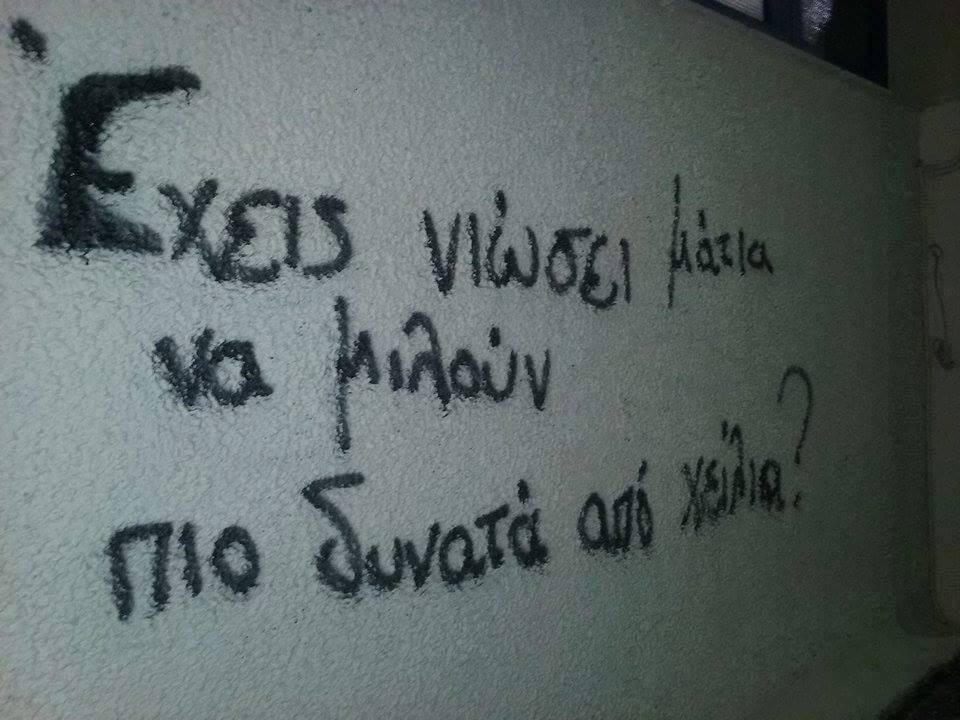 Έχεις νιώσει μάτια
να μιλούν
πιο δυνατά από χείλια?